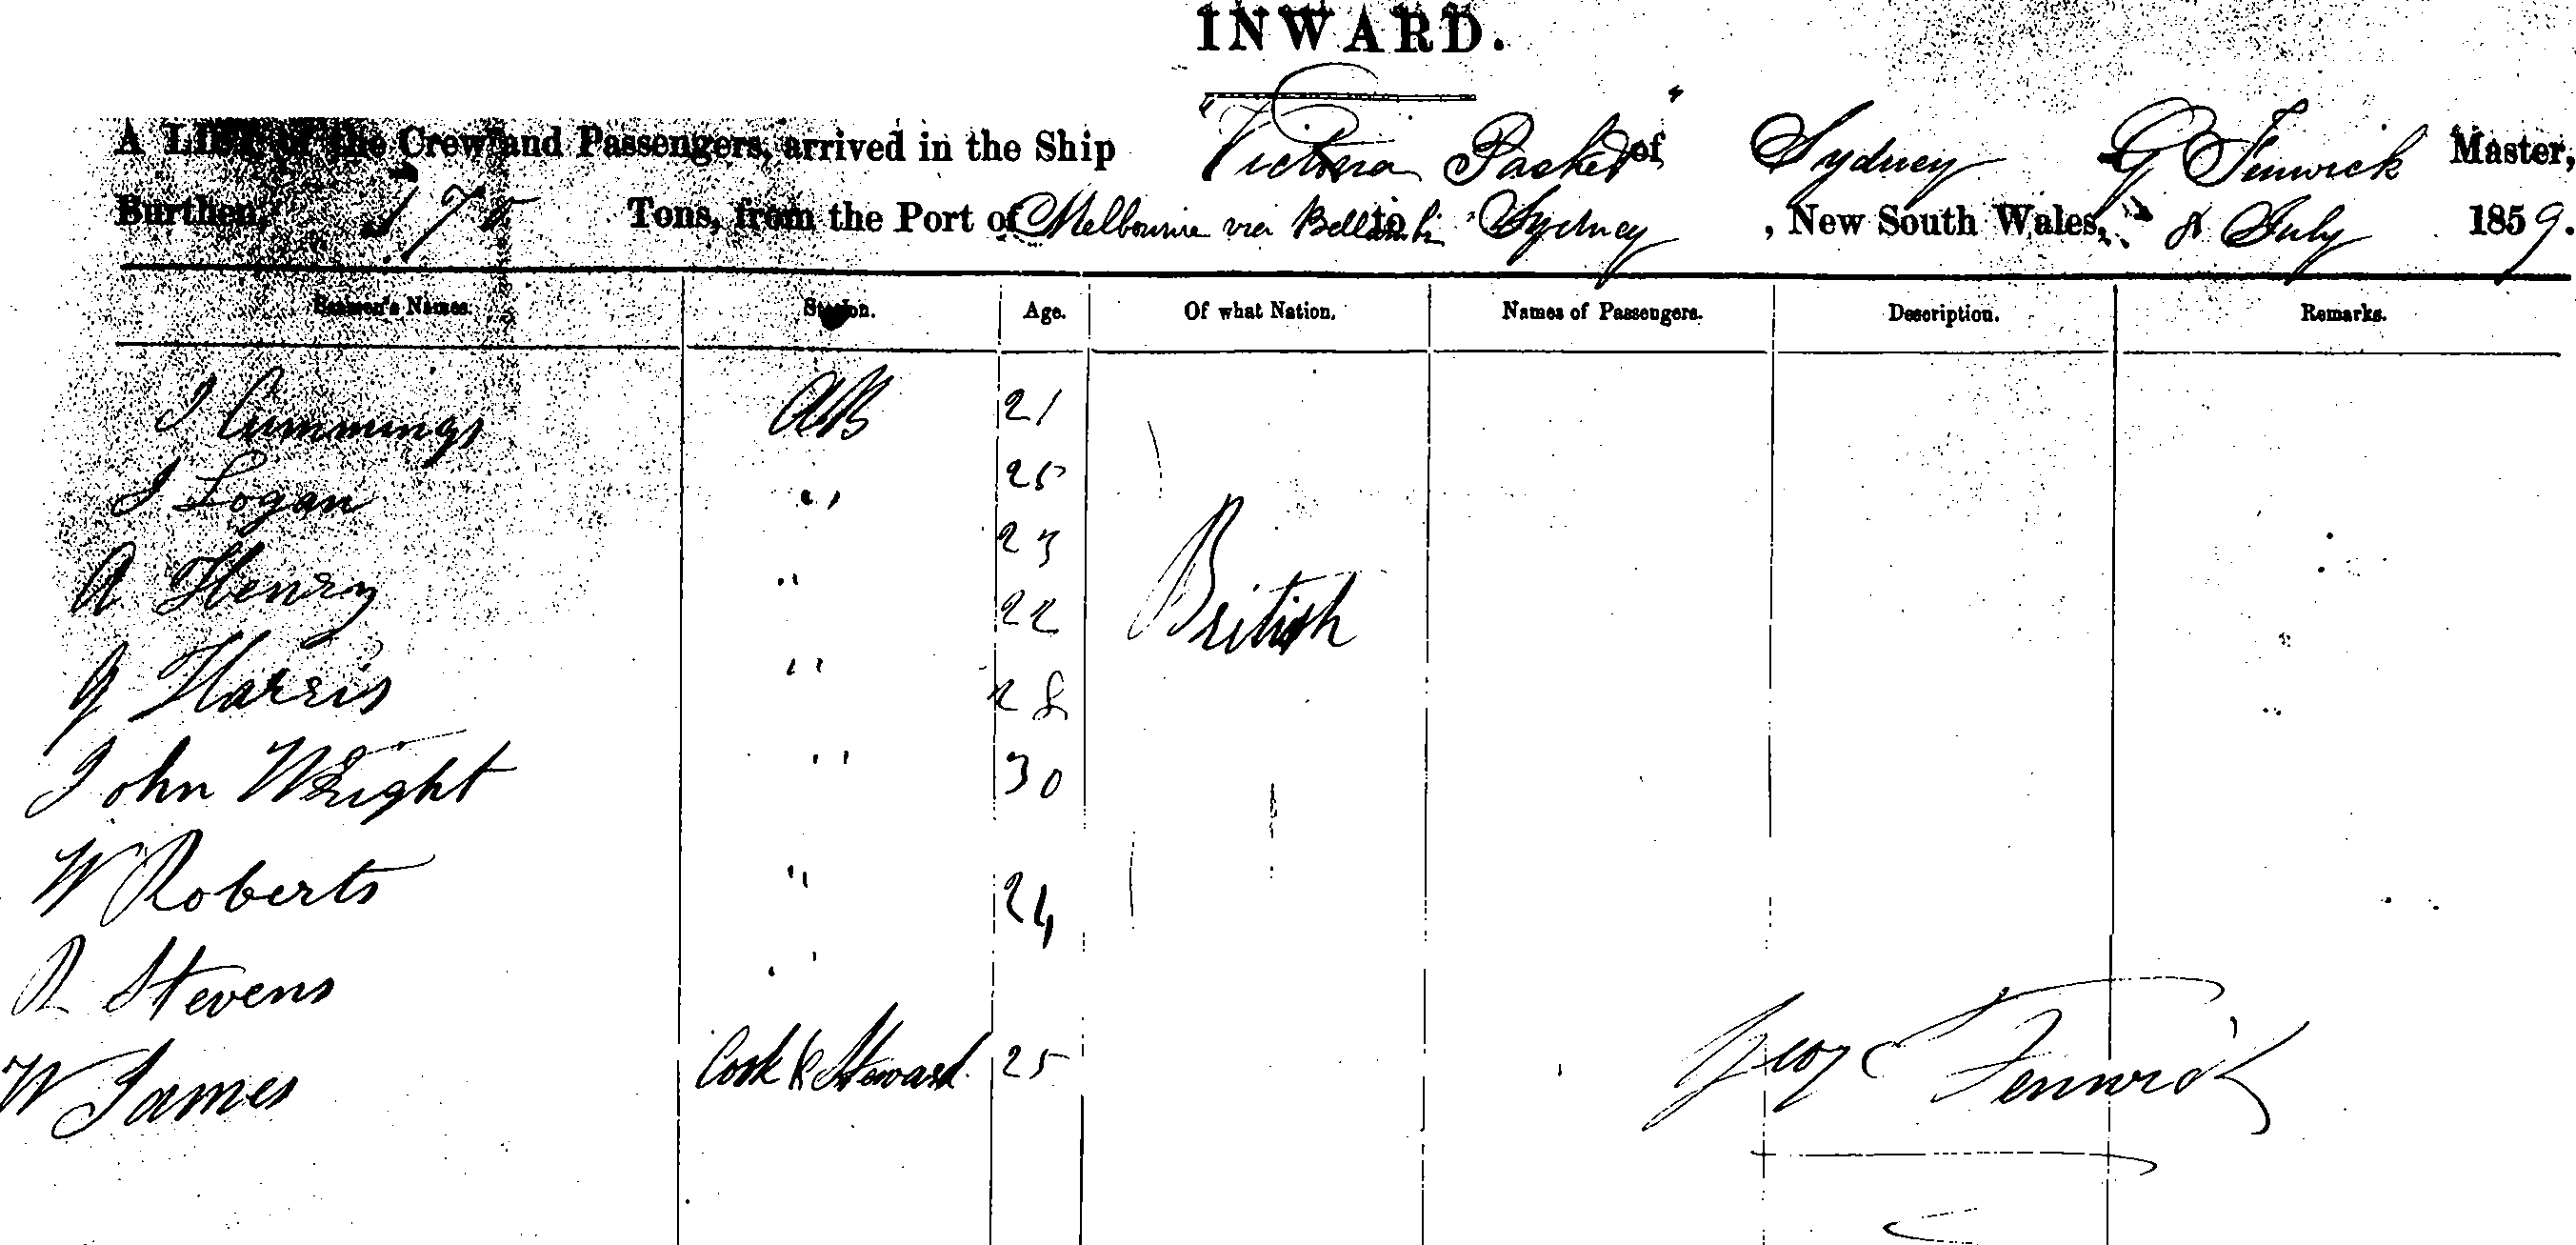 INWARD.
A LIST of the Crew and Passengers, arrived in the Ship "Victoria Packet" of Sydney G Fenwick Master,
Burthen, 170 Tons, from the Port of Melbourne via Bellambi to Sydney, New South Wales, 8 July 1859.
Seamen's Names. Station. Age. Of what Nation. Names of Passengers. Description. Remarks.
J Cummings AB 21
J Logan " 25
A Henry " 23
British
J Harris " 22
28
John Wright " 30
W Roberts " 24
R Stevens "
W James Cook & Steward 25
Geo Fenwick